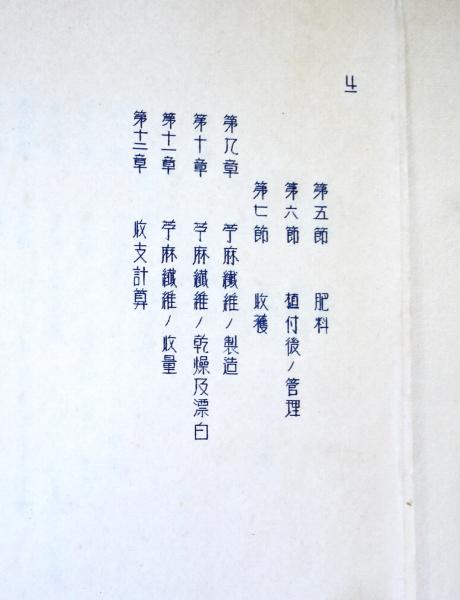 4
第五節 肥料
第六節 植付後ノ管理
第七節 收獲
第九章 苧麻纖維ノ製造
第十章 苧麻纖維ノ乾燥及漂白
第十一章 苧麻纖維ノ收量
第十二章 收支計算